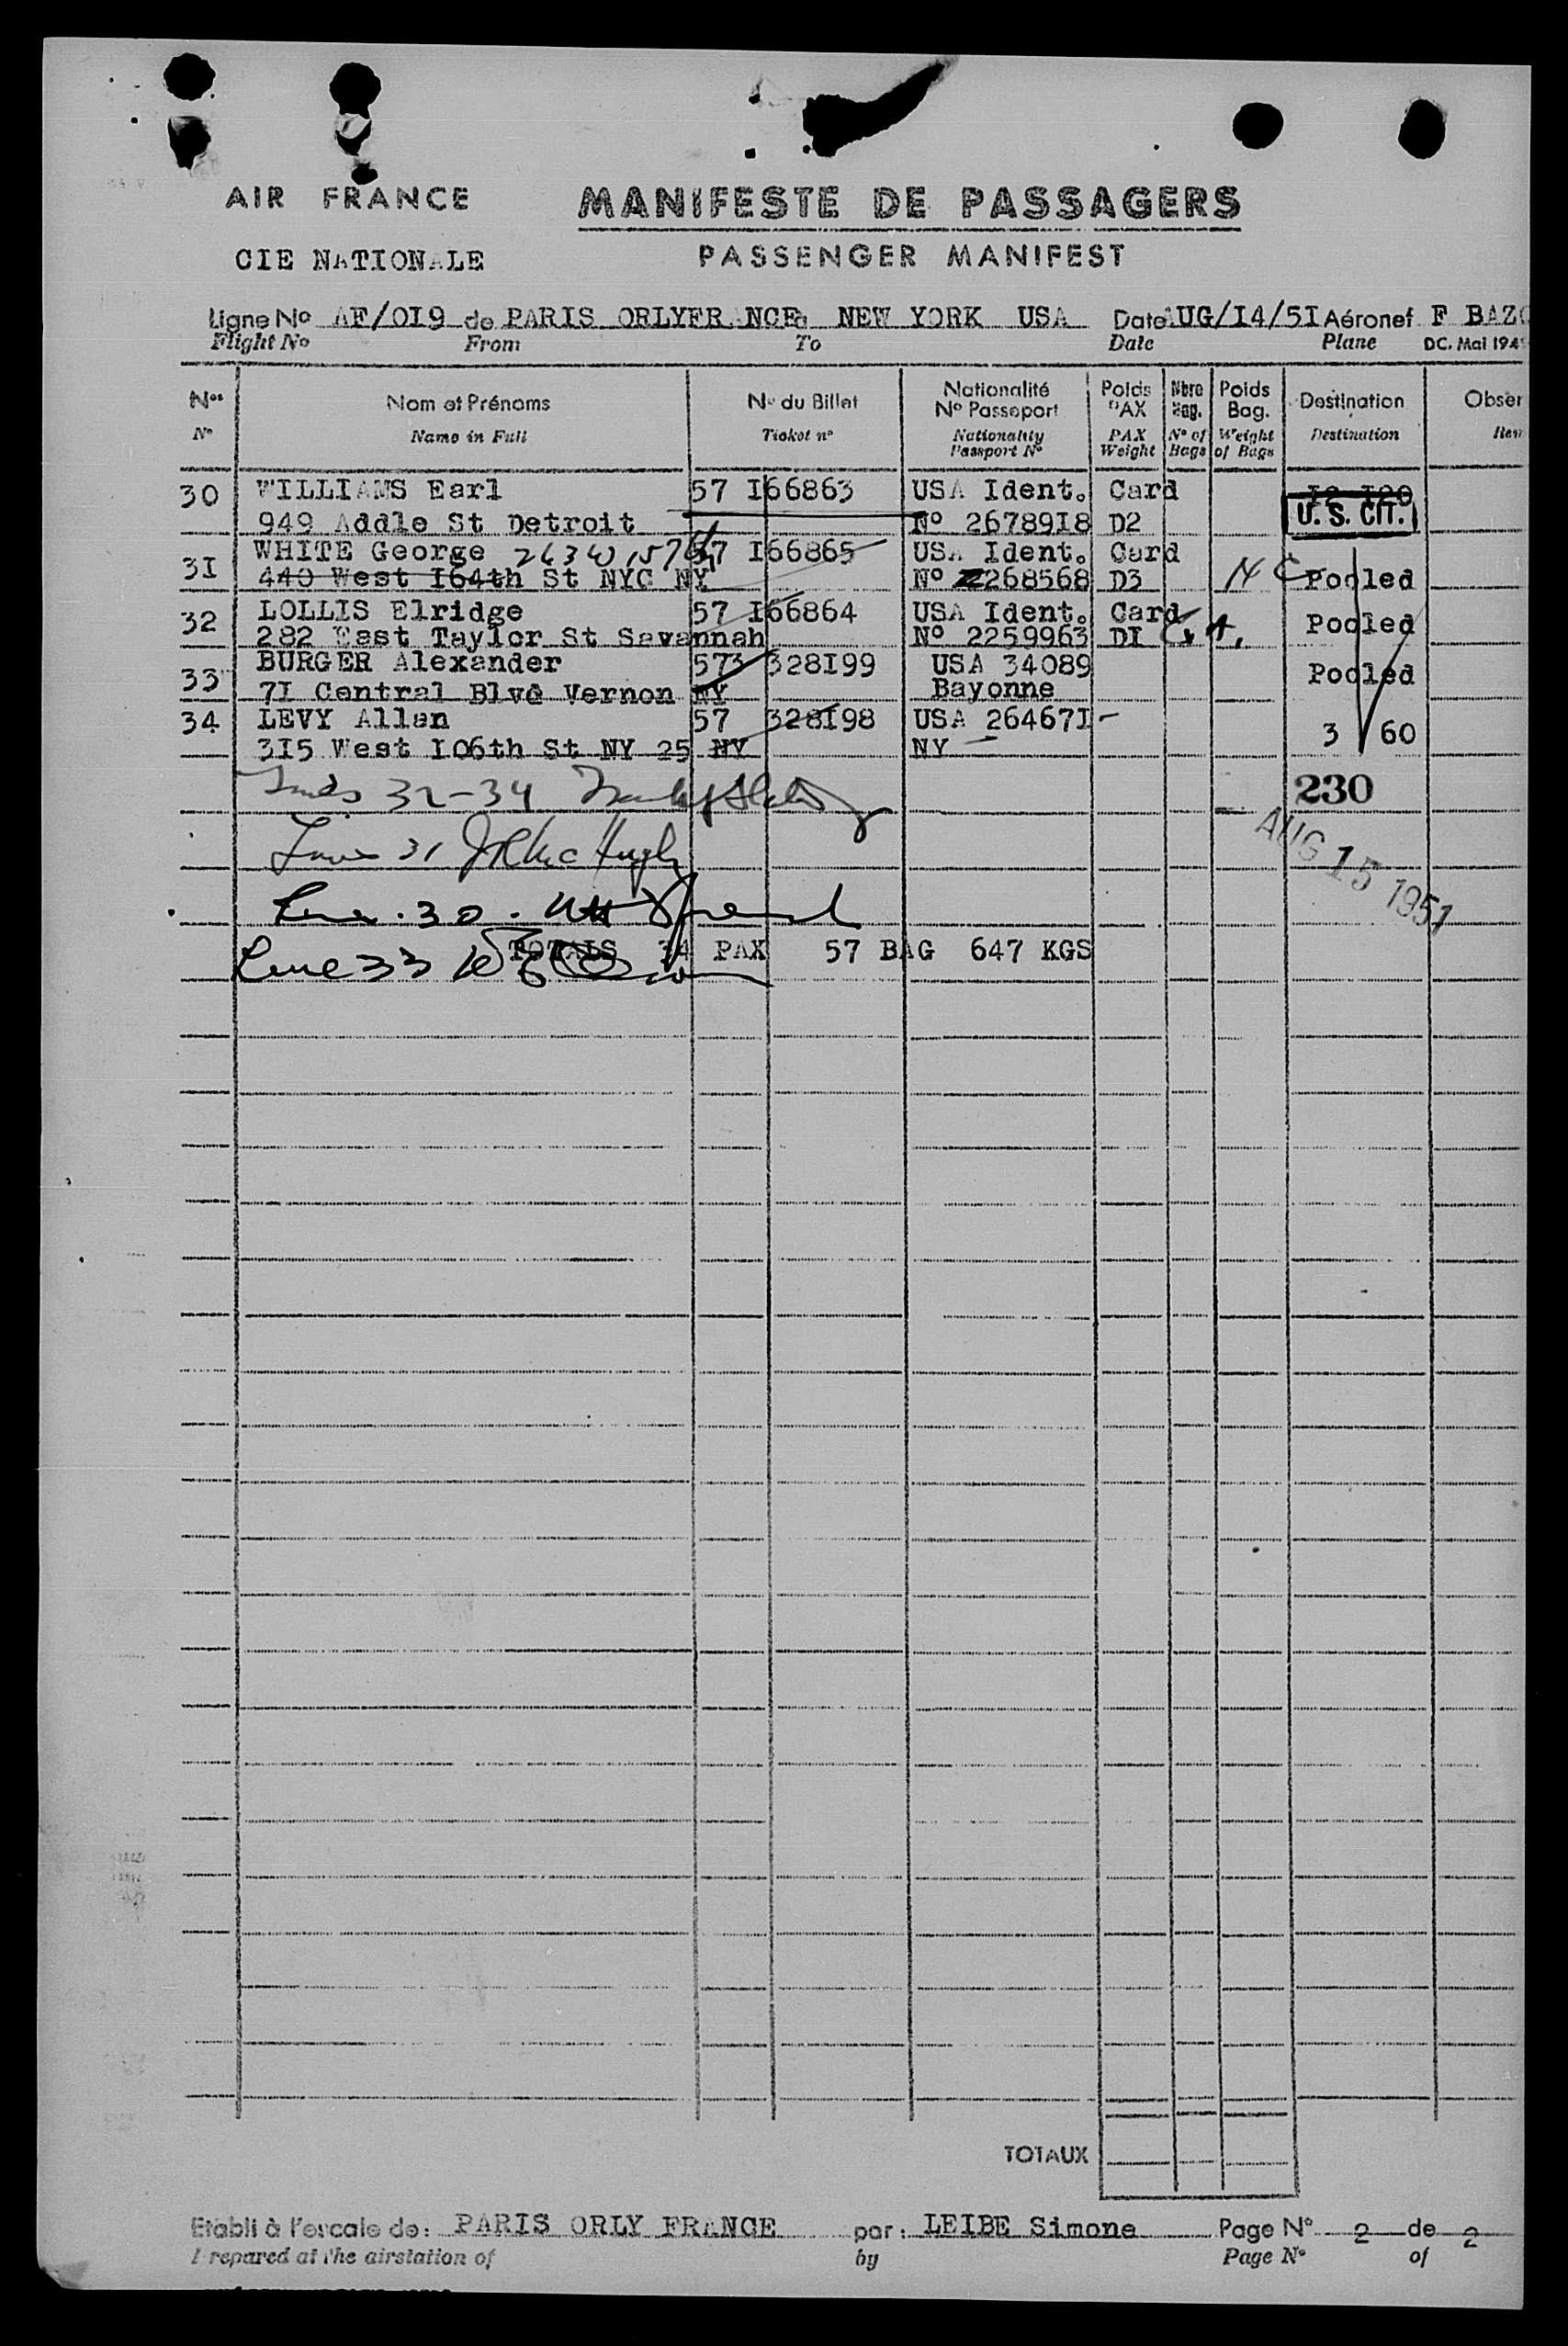 AIR FRANCE MANIFESTE DE PASSAGERS
CIE NATIONALE PASSENGER MANIFEST
Ligne No AF/OI9 de PARIS ORLYFRANCE NEW YORK USA Date AUG/I4/5I Aéronef F BAZ
Flight No From To Date Plane DC. Mai 194
Nos Nom et Prénoms No du Billet Nationalité No Passeport Poids PAX Nbre Bag. Poids Bag. Destination Obser
No Name in Full Ticket no Nationality Passport No PAX Weight No of Bags Weight of Bags Destination Rem
30 WILLIAMS Earl 57 I66863 USA Ident. Card I2 I20
949 Addle St Detroit No 26789I8 D2 U. S. CIT.
3I WHITE George 57 I66865 USA Ident. Card
440 West I64th St NYC NY No 268568 D3 Pooled
32 LOLLIS Elridge 57 I66864 USA Ident. Card
282 East Taylor St Savannah No 2259963 DI Pooled
33 BURGER Alexander 573 328I99 USA 34089
7I Central Blvd Vernon NY Bayonne Pooled
34 LEVY Allan 57 328I98 USA 26467I
3I5 West I06th St NY 25 NY NY 3 60
32-34 230
31
AUG 15 1951
Line 30
TOTALS 34 PAX 57 BAG 647 KGS
Line 33
TOTAUX
Etabli à l'escale de: PARIS ORLY FRANCE par: LEIBE Simone Page No 2 de 2
Prepared at the airstation of by Page No of